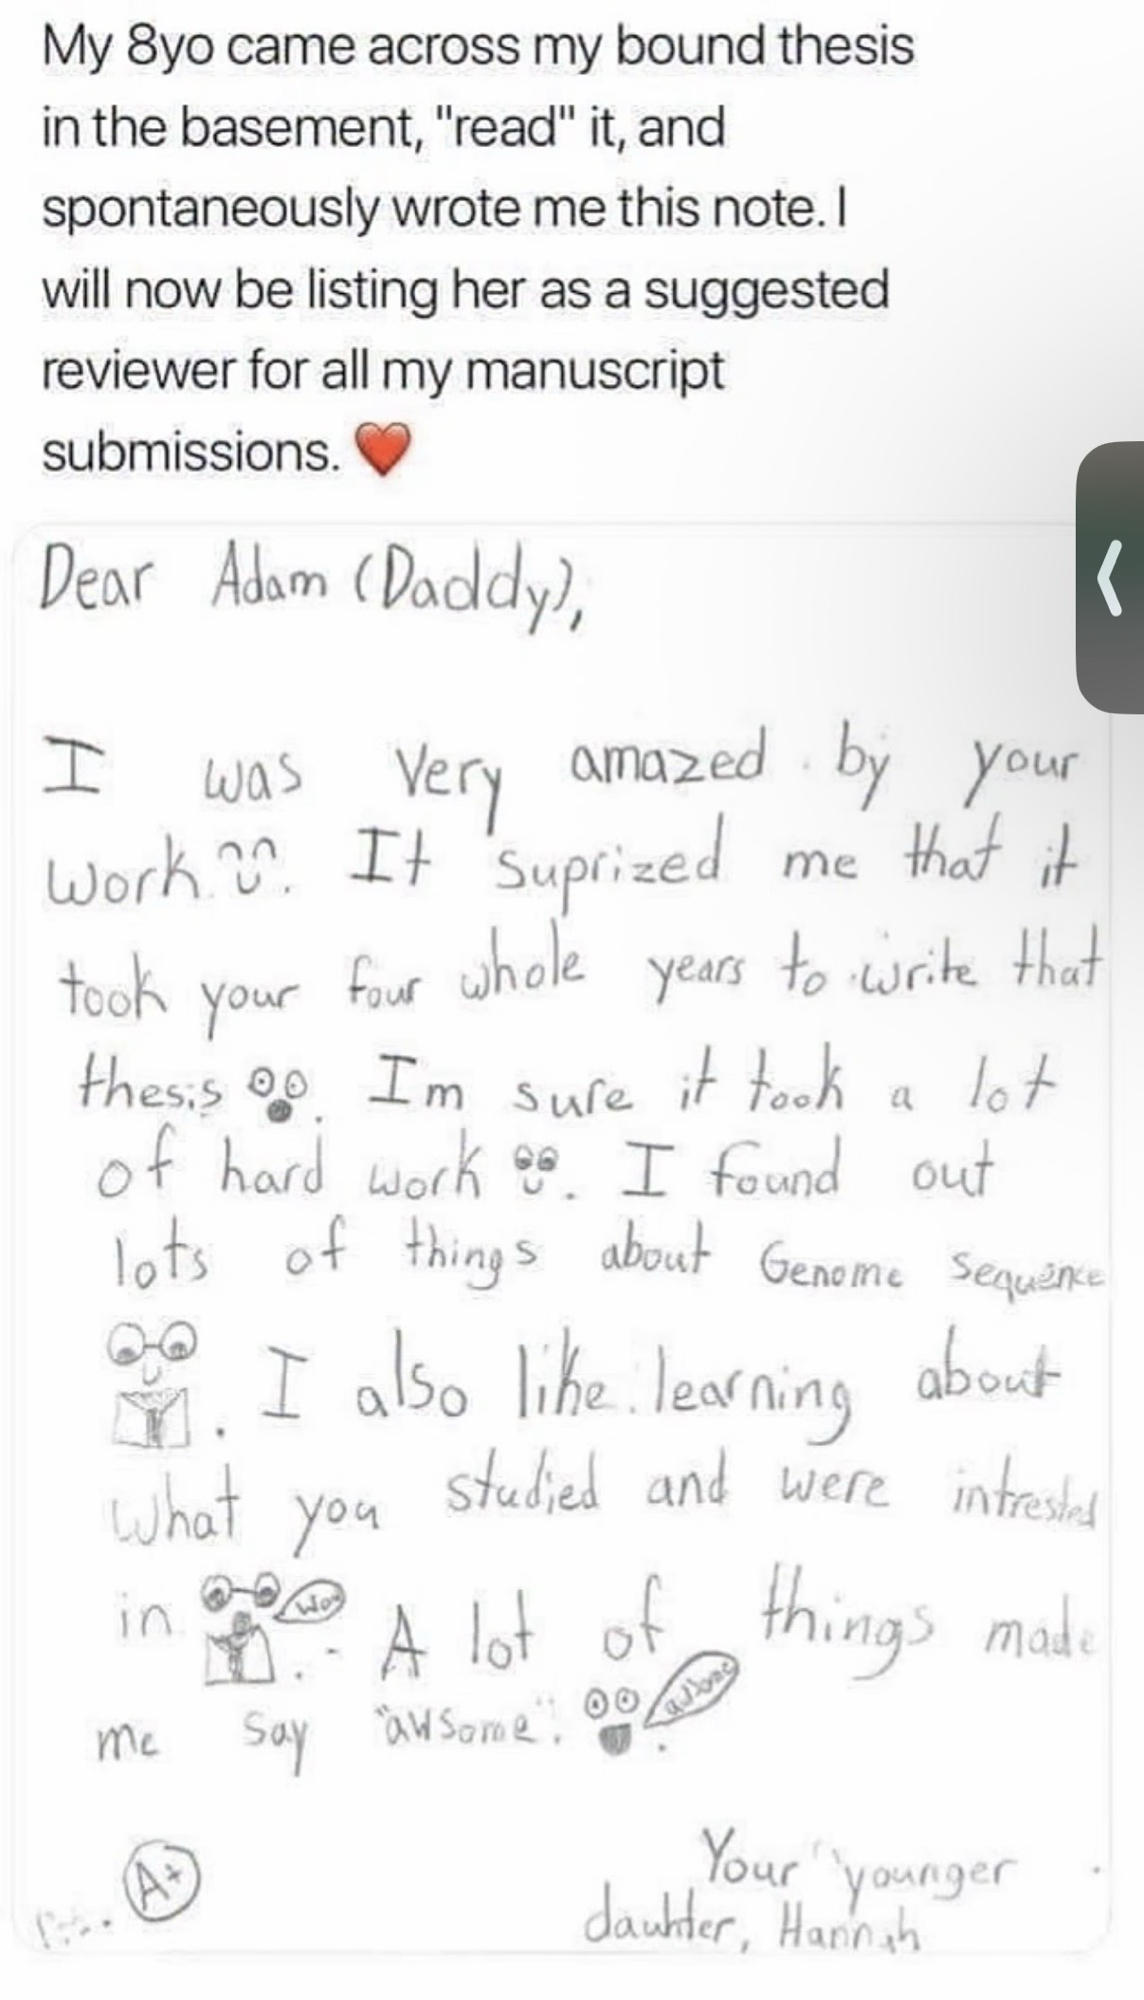 My 8yo came across my bound thesis
in the basement, "read" it, and
spontaneously wrote me this note. I
will now be listing her as a suggested
reviewer for all my manuscript
submissions. ❤️
Dear Adam (Daddy),
I was very amazed by your
work. It suprized me that it
took your four whole years to write that
thesis. Im sure it took a lot
of hard work. I found out
lots of things about Genome Sequence
. I also like learning about
what you studied and were intrested
in Wow. A lot of things made
me say "awsome". awsome
A+
Your younger
dauhter, Hannah